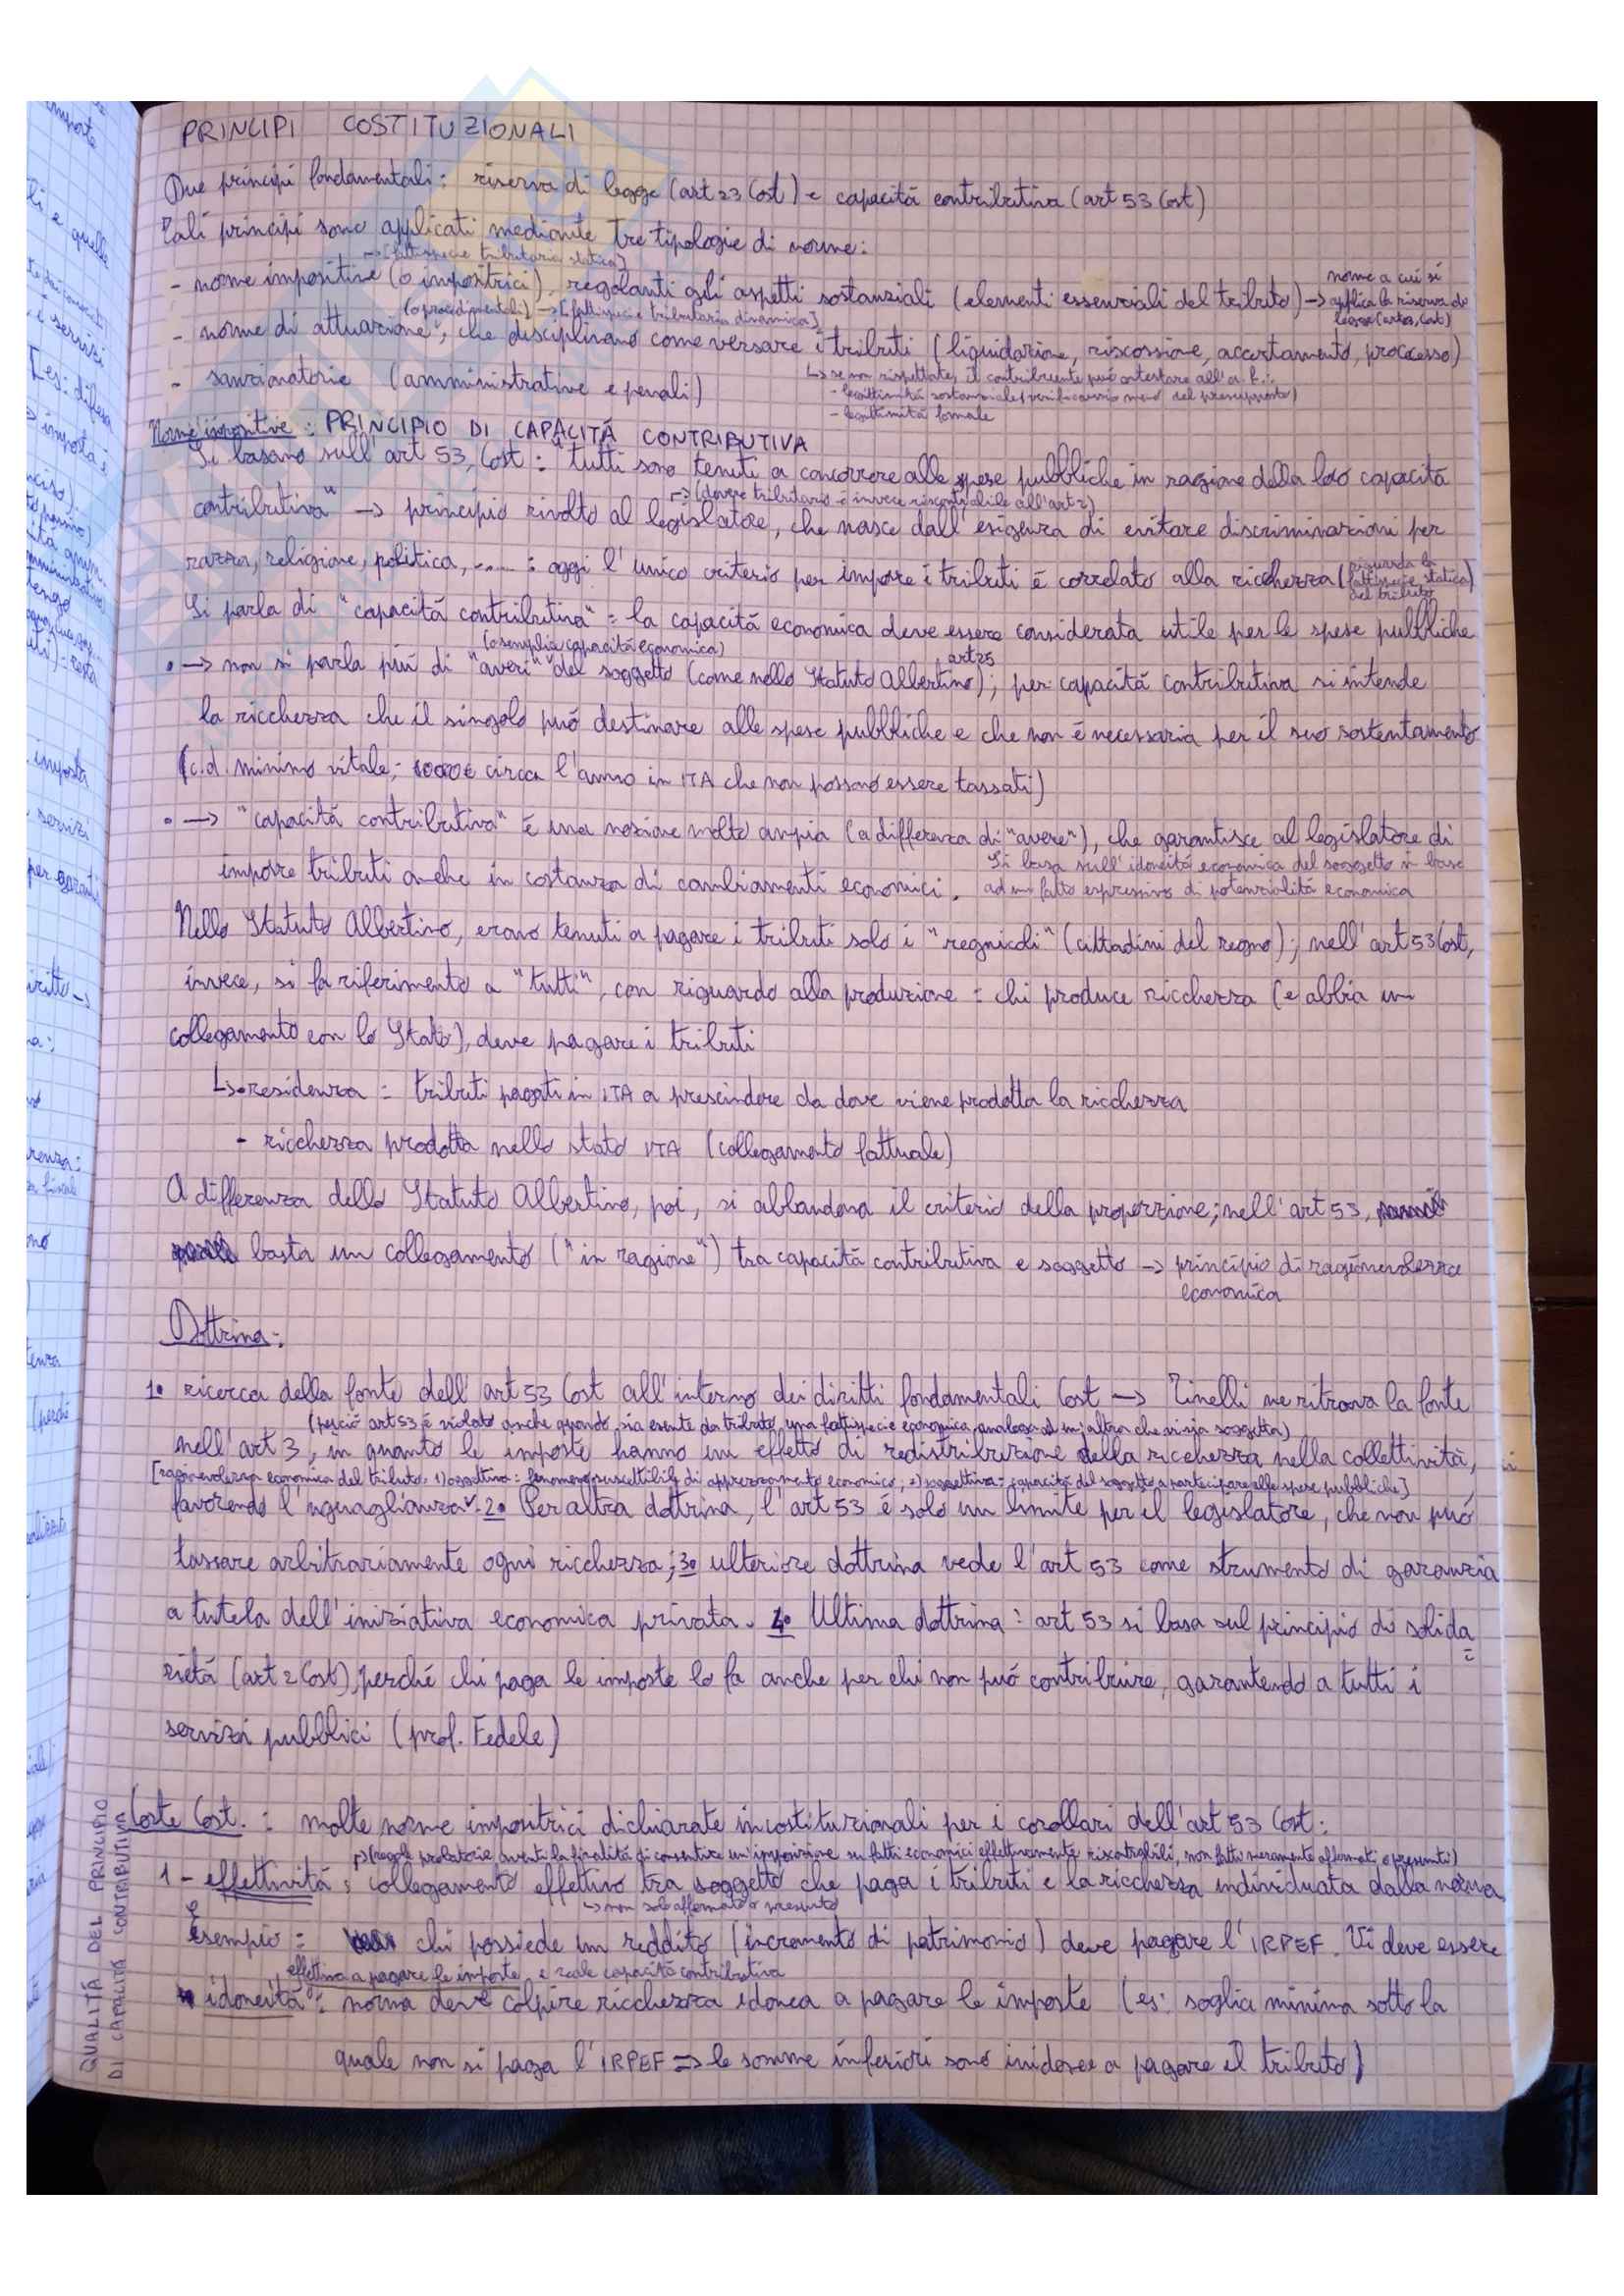 PRINCIPI COSTITUZIONALI
Due principi fondamentali: riserva di legge (art 23 Cost) e capacitá contributiva (art 53 Cost)
Tali principi sono applicati mediante tre tipologie di norme:
→ [fattispecie tributaria statica]
- norme impositive (o impositrici), regolanti gli aspetti sostanziali (elementi essenziali del tributo) → norme a cui si
applica la riserva di
legge (art 23, Cost)
(o procedimentali) → [fattispecie tributaria dinamica]
- norme di attuazione, che disciplinano come versare i tributi (liquidazione, riscossione, accertamento, processo)
- sanzionatorie (amministrative e penali)
↳ se non rispettate, il contribuente può contestare all'a.f.:
- legittimitá sostanziale (verificarsi o meno del presupposto)
- legittimitá formale
Norme impositive: PRINCIPIO DI CAPACITÁ CONTRIBUTIVA
Si basano sull'art 53, Cost: "tutti sono tenuti a concorrere alle spese pubbliche in ragione della loro capacitá
→ (dovere tributario é invece riscontrabile all'art 2)
contributiva" → principio rivolto al legislatore, che nasce dall'esigenza di evitare discriminazioni per
razza, religione, politica, ..... : oggi l'unico criterio per imporre i tributi é correlato alla ricchezza (riguarda la
fattispecie statica)
del tributo
Si parla di "capacitá contributiva" = la capacitá economica deve essere considerata utile per le spese pubbliche
(o semplice capacitá economica)
art 25
• → non si parla piú di "averi" del soggetto (come nello Statuto Albertino); per capacitá contributiva si intende
la ricchezza che il singolo puó destinare alle spese pubbliche e che non é necessaria per il suo sostentamento
(c.d. minimo vitale; circa l'anno in ITA che non possono essere tassati)
• → "capacitá contributiva" é una nozione molto ampia (a differenza di "avere"), che garantisce al legislatore di
imporre tributi anche in costanza di cambiamenti economici. Si basa sull'idoneitá economica del soggetto in base
ad un fatto espressivo di potenzialitá economica
Nello Statuto Albertino, erano tenuti a pagare i tributi solo i "regnicoli" (cittadini del regno); nell'art 53 Cost,
invece, si fa riferimento a "tutti", con riguardo alla produzione = chi produce ricchezza (e abbia un
collegamento con lo Stato), deve pagare i tributi
↳ • residenza = tributi pagati in ITA a prescindere da dove viene prodotta la ricchezza
- ricchezza prodotta nello stato ITA (collegamento fattuale)
A differenza dello Statuto Albertino, poi, si abbandona il criterio della proporzione; nell'art 53,
basta un collegamento ("in ragione") tra capacitá contributiva e soggetto → principio di ragionevolezza
economica
Dottrina:
1• ricerca della fonte dell'art 53 Cost all'interno dei diritti fondamentali Cost → Tinelli ne ritrova la fonte
(perció art 53 é violato anche quando sia esente da tributo una fattispecie economica analoga ad un'altra che vi sia soggetta)
nell'art 3, in quanto le imposte hanno un effetto di redistribuzione della ricchezza nella collettivitá,
[ragionevolezza economica del tributo: 1) oggettiva: fenomeno suscettibile di apprezzamento economico; 2) soggettiva: capacitá del soggetto a partecipare alle spese pubbliche]
favorendo l'uguaglianza. 2• Per altra dottrina, l'art 53 é solo un limite per il legislatore, che non puó
tassare arbitrariamente ogni ricchezza; 3• ulteriore dottrina vede l'art 53 come strumento di garanzia
a tutela dell'iniziativa economica privata. 4• Ultima dottrina: art 53 si basa sul principio di solida
rietá (art 2 Cost), perché chi paga le imposte lo fa anche per chi non puó contribuire, garantendo a tutti i
servizi pubblici (prof. Fedele)
QUALITÁ DEL PRINCIPIO
DI CAPACITÁ CONTRIBUTIVA
Corte Cost.: molte norme impositrici dichiarate incostituzionali per i corollari dell'art 53 Cost:
→ (regole probatorie aventi la finalitá di consentire un'imposizione su fatti economici effettivamente riscontrabili, non fatti meramente affermati o presunti)
1 - effettivitá: collegamento effettivo tra soggetto che paga i tributi e la ricchezza individuata dalla norma
→ non solo affermato o presunto
Esempio: chi possiede un reddito (incremento di patrimonio) deve pagare l'IRPEF. Vi deve essere
effettiva a pagare le imposte e reale capacitá contributiva
idoneitá: norma deve colpire ricchezza idonea a pagare le imposte (es: soglia minima sotto la
quale non si paga l'IRPEF ⇒ le somme inferiori sono inidonee a pagare il tributo)